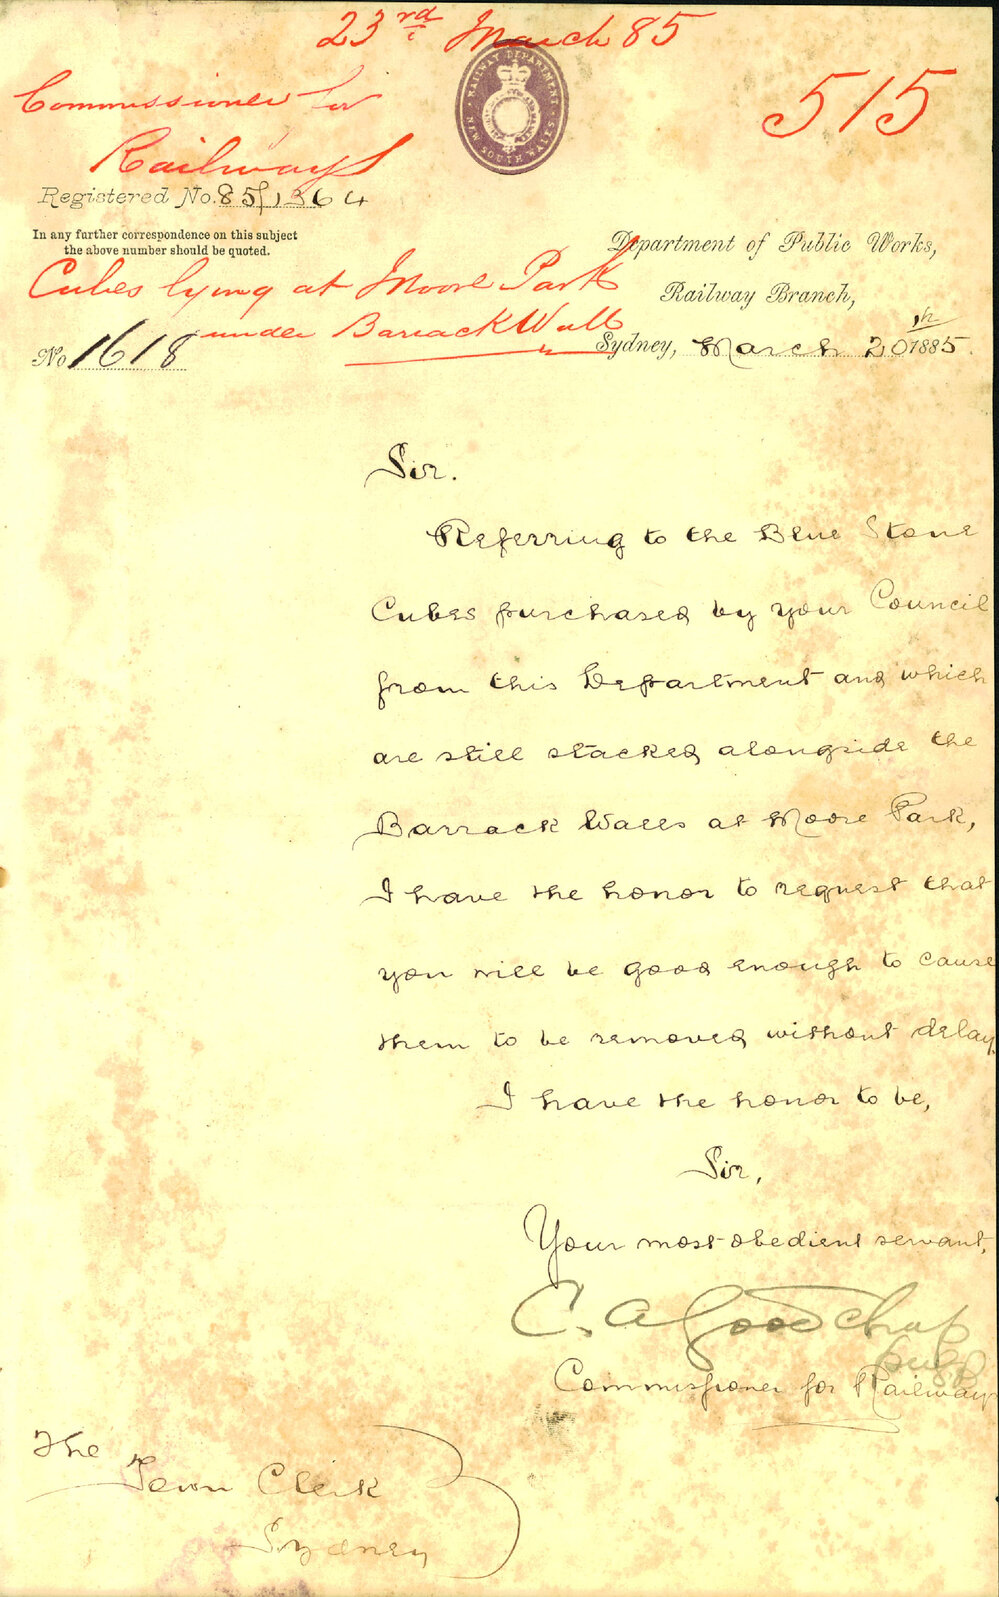 23rd March 85
515
Commissioner for
Railways
RAILWAY DEPARTMENT
NEW SOUTH WALES
Registered No. 85/1364
In any further correspondence on this subject
the above number should be quoted.
Cubes lying at Moore Park
under Barrack Wall
No 1618
Department of Public Works,
Railway Branch,
Sydney, March 20th 1885.
Sir.
Referring to the Blue Stone
Cubes purchased by your Council
from this Department and which
are still stacked alongside the
Barrack Walls at Moore Park,
I have the honor to request that
you will be good enough to cause
them to be removed without delay.
I have the honor to be,
Sir,
Your most obedient servant,
C. A. Goodchap
Commissioner for Railways
The
Town Clerk
Sydney